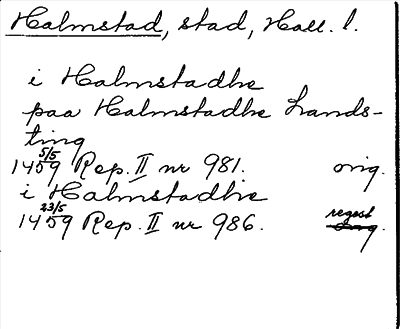 Halmstad, stad, Hall. l.
i Halmstadhe
paa Halmstadhe Lands-
ting
1459 5/5 Rep. II nr 981. orig.
i Halmstadhe
1459 23/5 Rep. II nr 986. regest